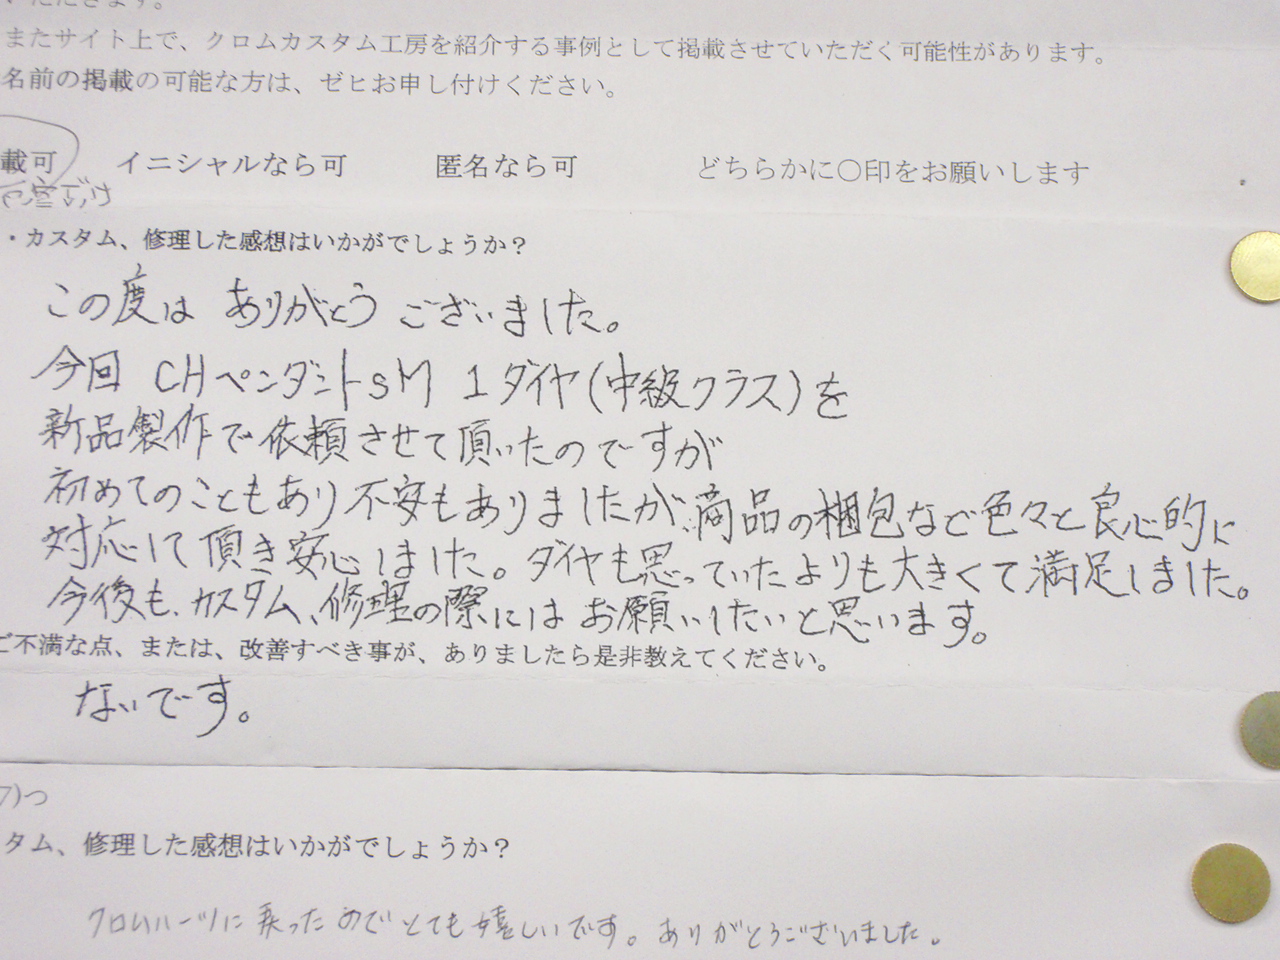 いただきます。
またサイト上で、クロムカスタム工房を紹介する事例として掲載させていただく可能性があります。
名前の掲載の可能な方は、ゼヒお申し付けください。
載可 イニシャルなら可 匿名なら可 どちらかに〇印をお願いします
だけ
・カスタム、修理した感想はいかがでしょうか？
この度は ありがとう ございました。
今回 CHペンダントSM 1ダイヤ(中級クラス)を
新品製作で依頼させて頂いたのですが
初めてのこともあり不安もありましたが、商品の梱包など色々と良心的に
対応して頂き安心しました。ダイヤも思っていたよりも大きくて満足しました。
今後も、カスタム、修理の際にはお願いしたいと思います。
ご不満な点、または、改善すべき事が、ありましたら是非教えてください。
ないです。
タム、修理した感想はいかがでしょうか？
クロムハーツに乗ったのでとても嬉しいです。ありがとうございました。